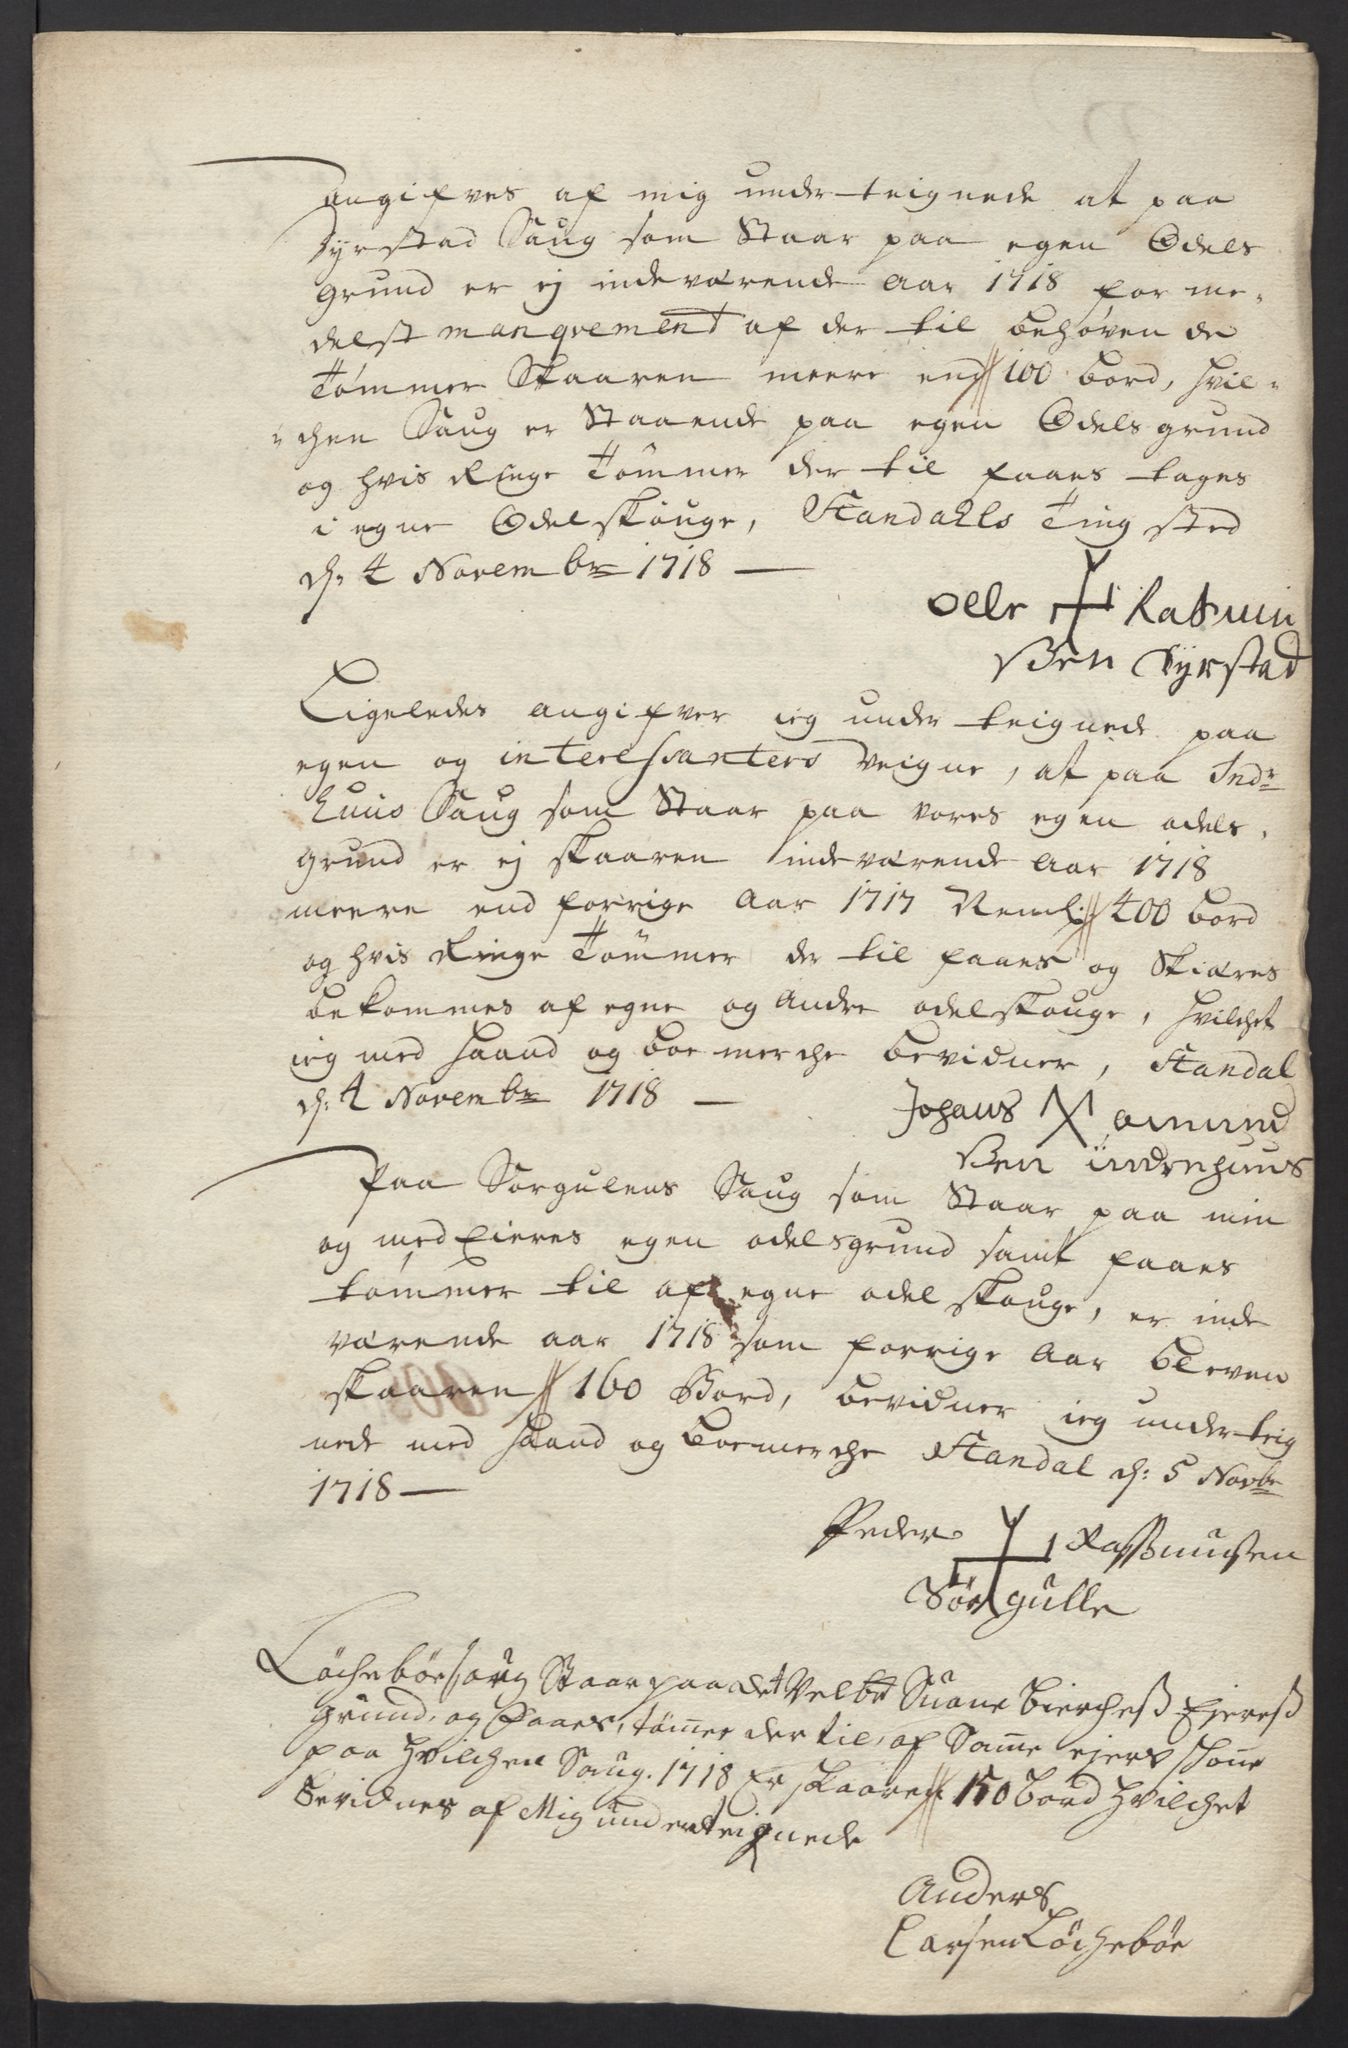 angifves af mig under teignede at paa
Syrstad Saug som Staar paa egen Odels
grund er ej indeværende aar 1718 for me-
delst manqvement af der til behøven de
Tömmer Skaaren meere end 100 bord, hvil-
chen Saug er Staaende paa egen Odels grund
og hvis Ringe Tömmer der til faaes tages
i egne Odel skouge, Standahls Ting sted
d: 4 Novembr 1718 —
Olle Rasmu
ßen Syrstad
Ligeledes angifver ieg under teignede paa
egen og interessanters Veigne, at paa Indr
Huus Saug som Staar paa vores egen odels
grund er ej skaaren indeværende Aar 1718
meere end forrige Aar 1717 Neml: 400 bord
og hvis Ringe Tömmer der til faaes og Skiæres
bekommes af egne og Andre odelskouge, hvilchet
ieg med haand og boemerche bevidner, Standal
d: 4 Novembr 1718 —
Johans Aamund
ßen indrehuus
Paa Sørgulens Saug som Staar paa min
og med Eieres egen odelsgrund samt faaes
tömmer til af egne odel skouge, er inde
værende aar 1718 som forrige Aar bleven
skaaren 160 Bord, bevidner ieg underteig
nede med haand og boemerche Standal d: 5 Novbr
1718 —
Peder Rassmusen
Sørgulle
Löcheböe saug Staar paa det Velbr Suane Biercheß Ejereß
grund, og Faaes, tömer der til, af Same ejers skoue
paa hvilchen Saug. 1718 Er skaaren 150 bord hvilchet
bevidnes af Mig underteignede
Anders
Larsen Löcheböe